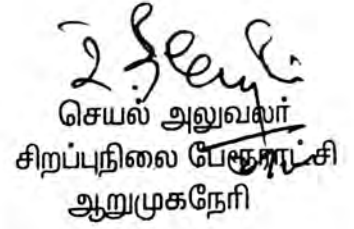 செயல் அலுவலர்
சிறப்புநிலை பேரூராட்சி
ஆறுமுகநேரி